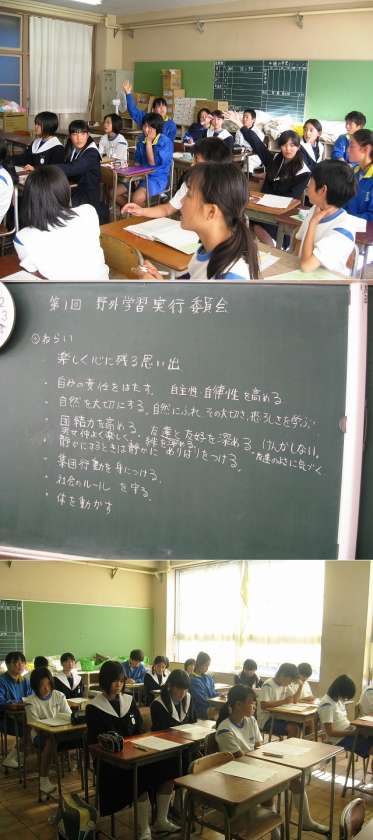 第1回 野外学習実行委員会
ねらい
楽しく心に残る思い出
・自分の責任をはたす。自主性 自律性を高める
・自然を大切にする。自然にふれ、その大切さ、恐ろしさを学ぶ。
・団結力を高める。友達と友好を深める。けんかしない。
男女仲よく楽しく。絆を深める。友達のよさに気づく
静かにするときは静かに めりはりをつける。
・集団行動を身につける。
・社会のルールを守る。
・体を動かす